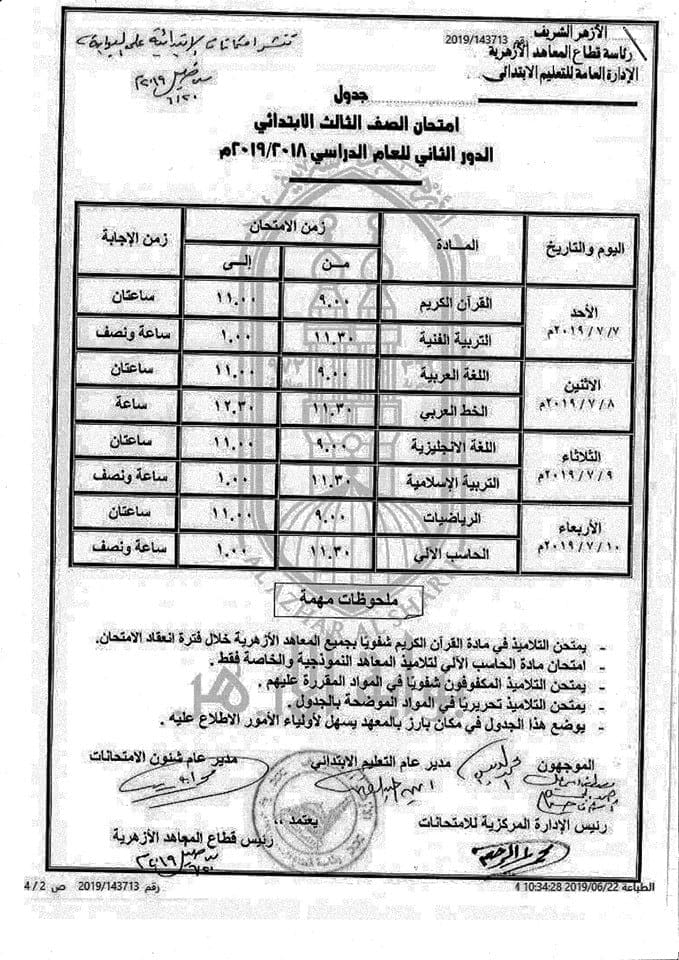 الأزهر الشريف
رقم 2019/143713
رئاسة قطاع المعاهد الأزهرية
الإدارة العامة للتعليم الابتدائى
تنشر امتحانات الابتدائية على البوابة
٢٠١٩
٦/٢٠
جدول
امتحان الصف الثالث الابتدائي
الدور الثاني للعام الدراسي ٢٠١٩/٢٠١٨م
اليوم والتاريخ المـادة زمن الامتحان زمن الإجابة
مـن إلـى
الأحد ٢٠١٩/٧/٧م القرآن الكريم ٩.٠٠ ١١.٠٠ ساعتان
التربية الفنية ١١.٣٠ ١.٠٠ ساعة ونصف
الاثنين ٢٠١٩/٧/٨م اللغة العربية ٩.٠٠ ١١.٠٠ ساعتان
الخط العربي ١١.٣٠ ١٢.٣٠ ساعة
الثلاثاء ٢٠١٩/٧/٩م اللغة الانجليزية ٩.٠٠ ١١.٠٠ ساعتان
التربية الإسلامية ١١.٣٠ ١.٠٠ ساعة ونصف
الأربعاء ٢٠١٩/٧/١٠م الرياضيات ٩.٠٠ ١١.٠٠ ساعتان
الحاسب الالي ١١.٣٠ ١.٠٠ ساعة ونصف
AL AZHAR AL SHARIF
ملحوظات مهمة
- يمتحن التلاميذ في مادة القرآن الكريم شفويًا بجميع المعاهد الأزهرية خلال فترة انعقاد الامتحان.
- امتحان مادة الحاسب الآلي لتلاميذ المعاهد النموذجية والخاصة فقط .
- يمتحن التلاميذ المكفوفون شفويًا في المواد المقررة عليهم .
- يمتحن التلاميذ تحريريًا في المواد الموضحة بالجدول .
- يوضع هذا الجدول في مكان بارز بالمعهد يسهل لأولياء الأمور الاطلاع عليه .
الموجهون مدير عام التعليم الابتدائي مدير عام شئون الامتحانات
رئيس الإدارة المركزية للامتحانات يعتمد ،، رئيس قطاع المعاهد الأزهرية
٢٠١٩
الطباعة 2019/06/22 10:34:28 رقم 2019/143713 ص 2 / 4